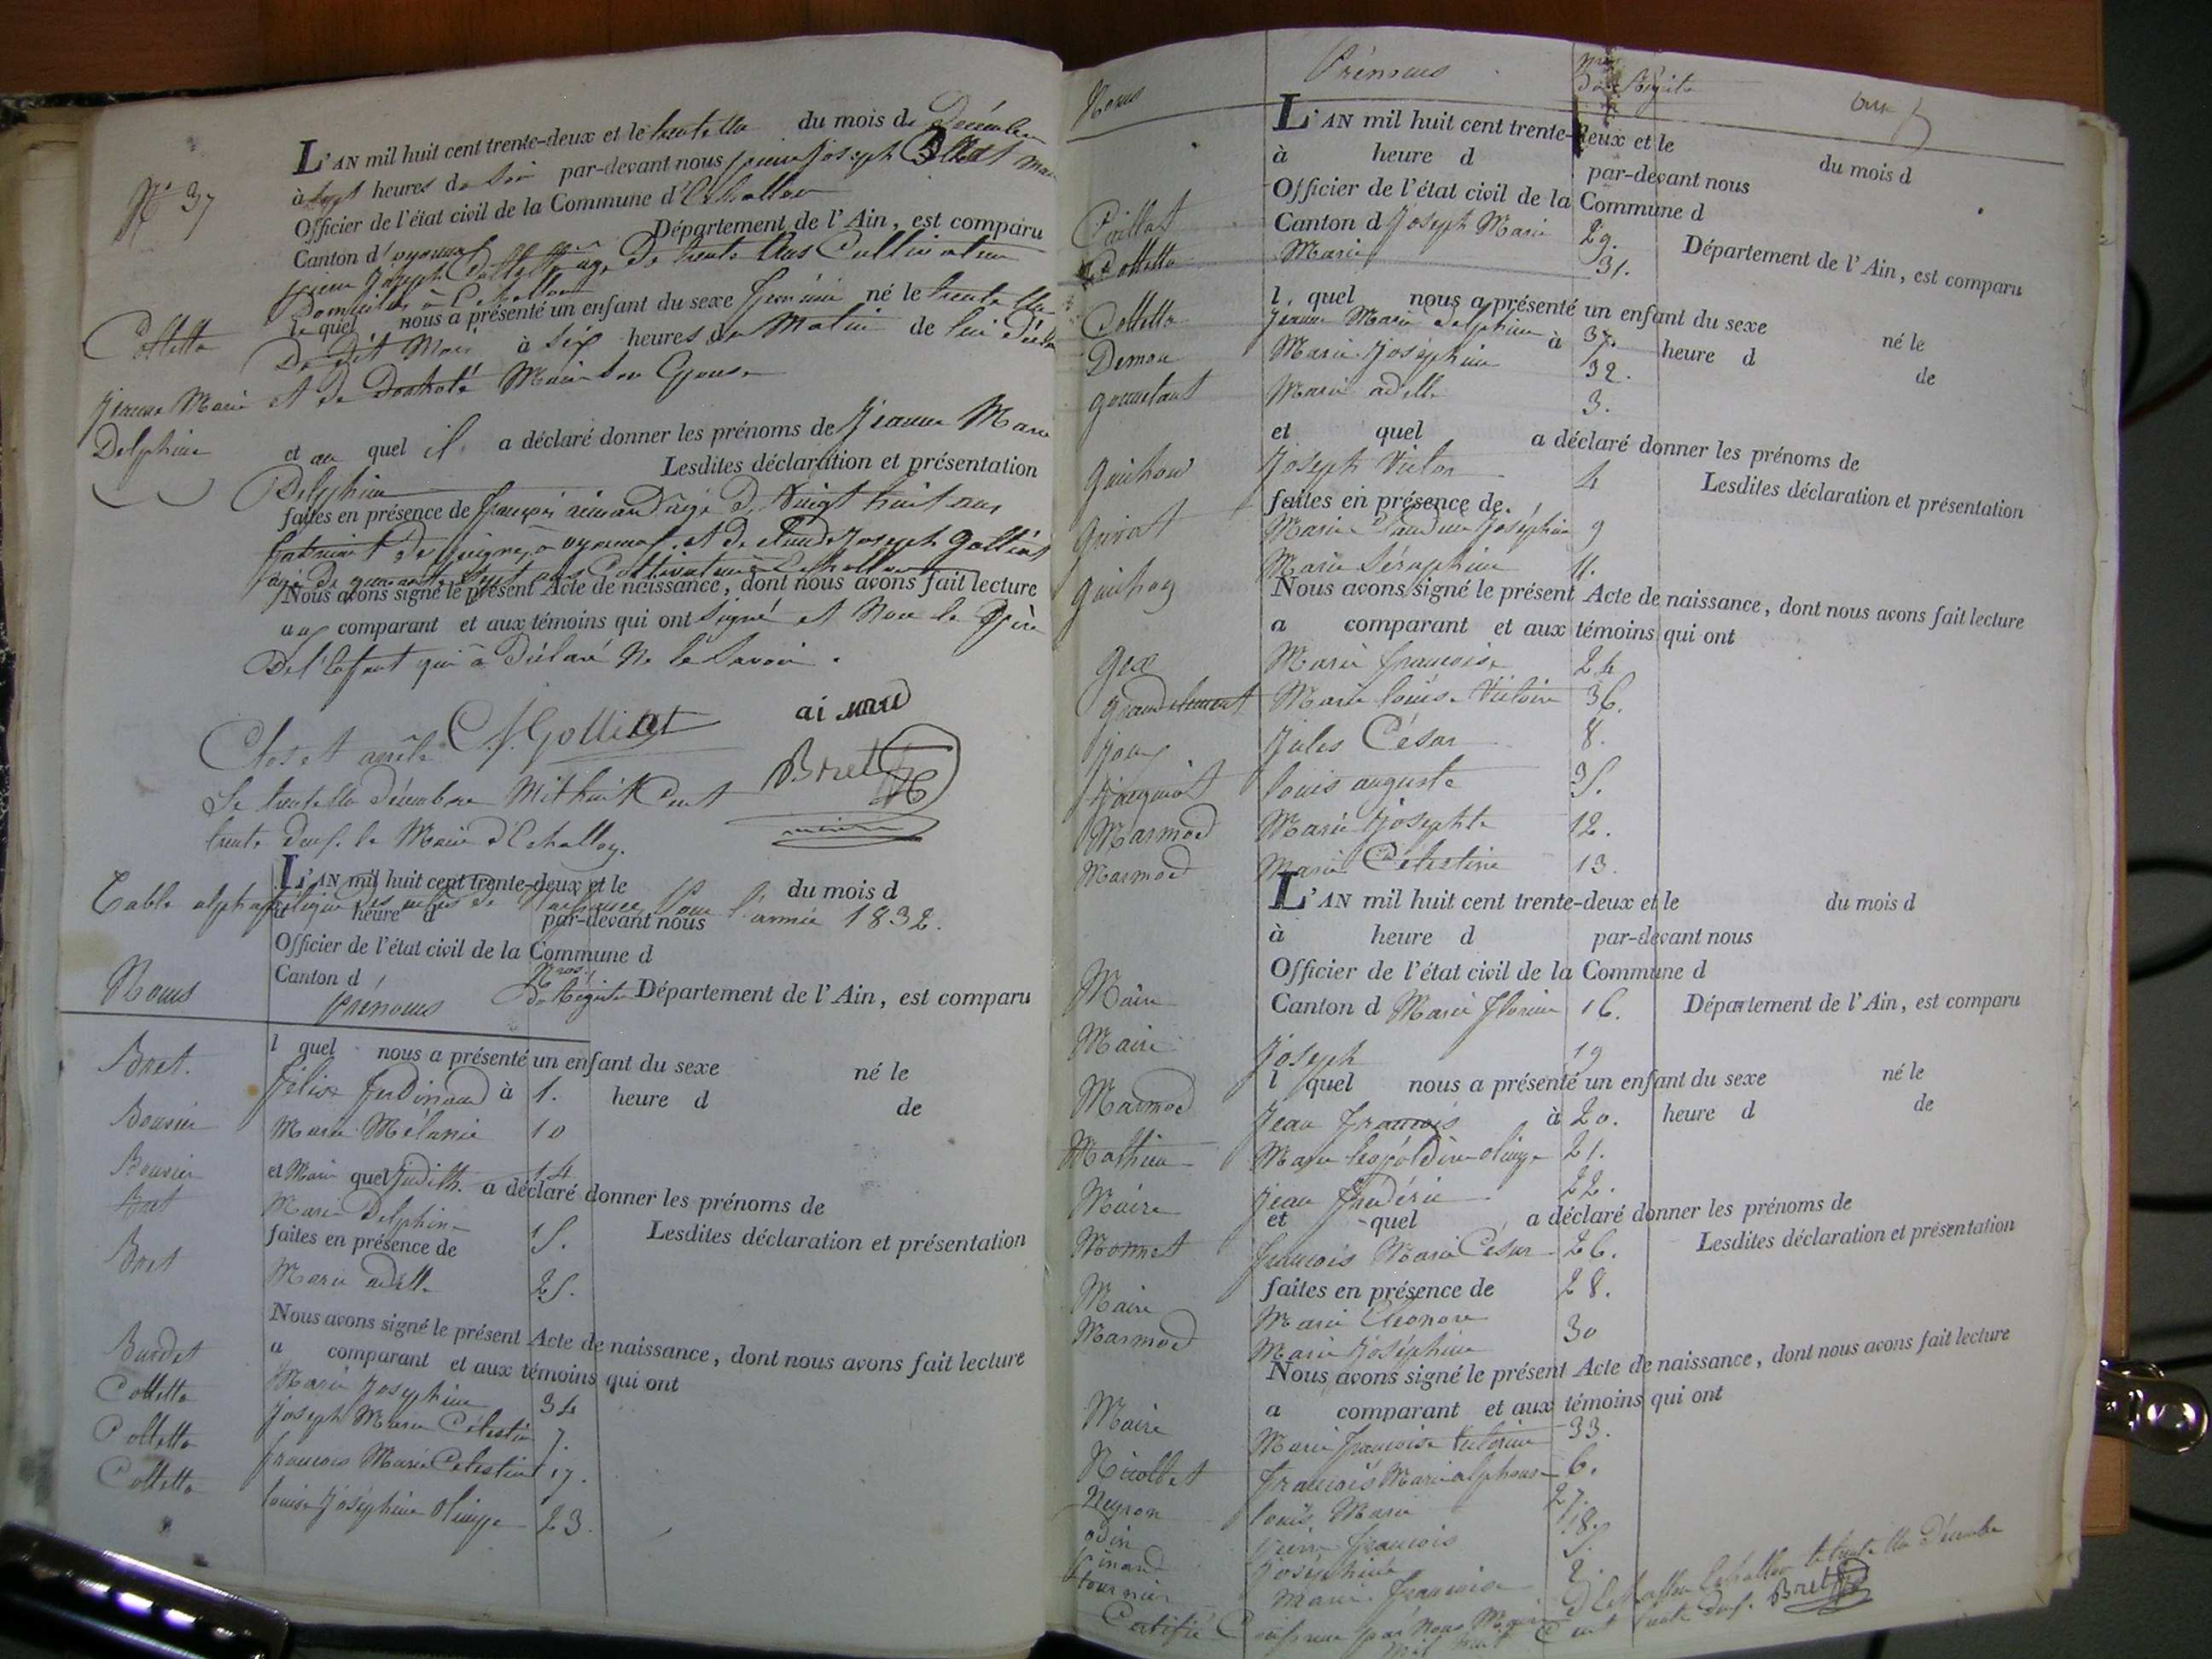 N° 37
L'AN mil huit cent trente-deux et le trente un du mois de Décembre
à sept heures du Soir par-devant nous pierre Joseph Bret Maire
Officier de l'état civil de la Commune d'Echallon
Canton d'oyonnax Département de l'Ain, est comparu
pierre Joseph Collette age De trente Ans Cultivateur
Domicilié à Echallon
le quel nous a présenté un enfant du sexe féminin né le trente Un
Collette
Du Dit Mois à six heures du Matin de lui Déclarant
Jeanne Marie
et de Marie Son Epouse
Delphine
et au quel il a déclaré donner les prénoms de Jeanne Marie
Delphine Lesdites déclaration et présentation
faites en présence de françois aimard âgé De Vingt huit ans
de peignes à oyonnax et de Claude Joseph Golliet
âgé De quarante Sept ans Cultivateur à Echallon
Nous avons signé le présent Acte de naissance, dont nous avons fait lecture
au comparant et aux témoins qui ont Signé et Non le Père
De l'Enfant qui a Déclaré Ne le Savoir.
C J Golliet aimard
Clos et arrêté
Bret
Le trente Un Décembre Mil huit Cent
maire
trente Deux. le Maire d'Echallon.
L'AN mil huit cent trente-deux et le du mois d
Table alphabétique Des actes de Naissance Pour l'année 1832.
à heure d par-devant nous
Officier de l'état civil de la Commune d
Canton d Département de l'Ain, est comparu
Noms Prénoms Nros Du Régistre
l quel nous a présenté un enfant du sexe né le
Bret. félix ferdinand 1.
à heure d de
Bouvier Marie Mélanie 10
Bouvier Marie Judith. 14
et quel a déclaré donner les prénoms de
Bret Marie Delphine 15.
faites en présence de Lesdites déclaration et présentation
Bret Marie adelle 25.
Nous avons signé le présent Acte de naissance, dont nous avons fait lecture
a comparant et aux témoins qui ont
Burdet Marie Josephine 34
Collette Joseph Marie Célestin 7.
Collette francois Marie Celestin 17.
Collette louise Joséphine Olimpe 23.
Noms Prénoms Nros Du Régistre
L'AN mil huit cent trente-deux et le du mois d
à heure d par-devant nous
Officier de l'état civil de la Commune d
Canton d Département de l'Ain, est comparu
Caillat Joseph Marie 29.
Collette Marie 31.
l quel nous a présenté un enfant du sexe né le
Collette Jeanne Marie Delphine 37.
à heure d de
Demon Marie Joséphine 32.
Marie adelle 3.
et quel a déclaré donner les prénoms de
Joseph Victor 4
Lesdites déclaration et présentation
faites en présence de
Marie Claudine Joséphine 9
Marie Séraphine 11.
Nous avons signé le présent Acte de naissance, dont nous avons fait lecture
a comparant et aux témoins qui ont
Gex Marie françoise 24
Grandclement Marie louise Victoire 36.
Joux Jules César 8.
Jacquiot louis auguste 35.
Marmod Marie Josephte 12.
Marmod Marie Celestine 13.
L'AN mil huit cent trente-deux et le du mois d
à heure d par-devant nous
Officier de l'état civil de la Commune d
Canton d Département de l'Ain, est comparu
Maire Marie florine 16.
Maire Joseph 19
l quel nous a présenté un enfant du sexe né le
Marmod Jean françois 20.
à heure d de
Mathieu Marie léopoldine olimpe 21.
Maire Jean frédéric 22.
et quel a déclaré donner les prénoms de
Monnet francois Marie César 26.
Lesdites déclaration et présentation
faites en présence de
Maire Marie Eleonore 28.
Marmod Marie Joséphine 30
Nous avons signé le présent Acte de naissance, dont nous avons fait lecture
a comparant et aux témoins qui ont
Maire Marie francoise Victorine 33.
Nicollet françois Marie alphonse 6.
Neyron louis Marie 27.
odin pierre francois 18.
pinard Joséphine 5.
tournier Marie francoise 2.
Certifié Conforme par Nous Maire d'Echallon Echallon le trente Un Décembre
Mil huit Cent trente Deux. Bret